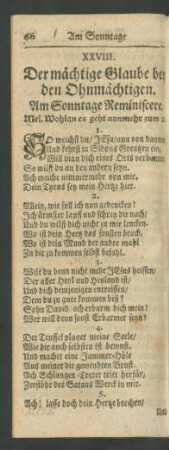 66 Am Sonntage
XXVIII.
Der mächtige Glaube bey
den Ohnmächtigen.
Am Sonntage Reminiscere.
Mel. Wohlan es geht nunmehr zum
1.
So weichst du, JEsu, nun von dannen
Und kehrst in Sidons Grentzen ein,
Will man dich eines Orts verbannen
So wilst du an den andern seyn.
Ach weiche nimmermehr von mir.
Dein Tyrus sey mein Hertze hier.
2.
Allein, wie soll ich nun gedencken?
Ich ärmster lauff und schrey dir nach;
Und du wilst dich nicht zu mir lencken.
Wo ist dein Hertz das sonsten brach,
Wo ist dein Mund der andre mahl
Die zu dir kommen selbst befahl.
3.
Wilst du denn nicht mehr JEsus heissen,
Der aller Heyl und Heyland ist,
Und dich demjenigen entreissen,
Dem du zu gute kommen bist?
Sohn David, ach erbarm dich mein!
Wer will denn sonst Erbarmer seyn?
4.
Der Teuffel plaget meine Seele,
Wie dir auch selbsten ist bewust,
Und machet eine Jammer-Höle
Aus meiner dir geweyhten Brust.
Ach Schlangen-Treter tritt herfür,
Zerstöhr des Satans Werck in mir.
5.
Ach! lasse doch dein Hertze brechen,